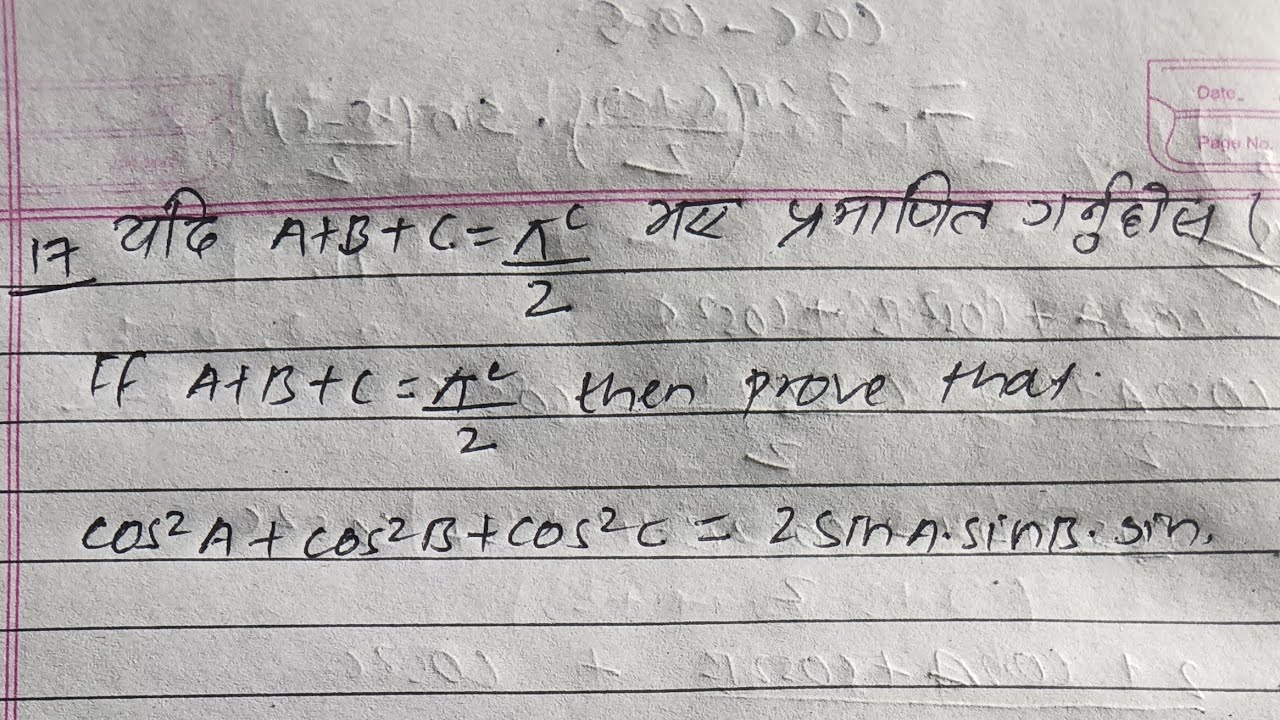 Date
Page No.
17 यदि A+B+C=π^c/2 भए प्रमाणित गर्नुहोस (
If A+B+C=π^c/2 then prove that.
cos²A+cos²B+cos²C = 2sinA.sinB.sin.